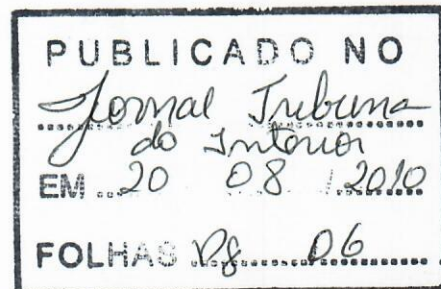 PUBLICADO NO
Jornal Tribuna
do Interior
EM 20 08 / 2010
FOLHAS Pg 06